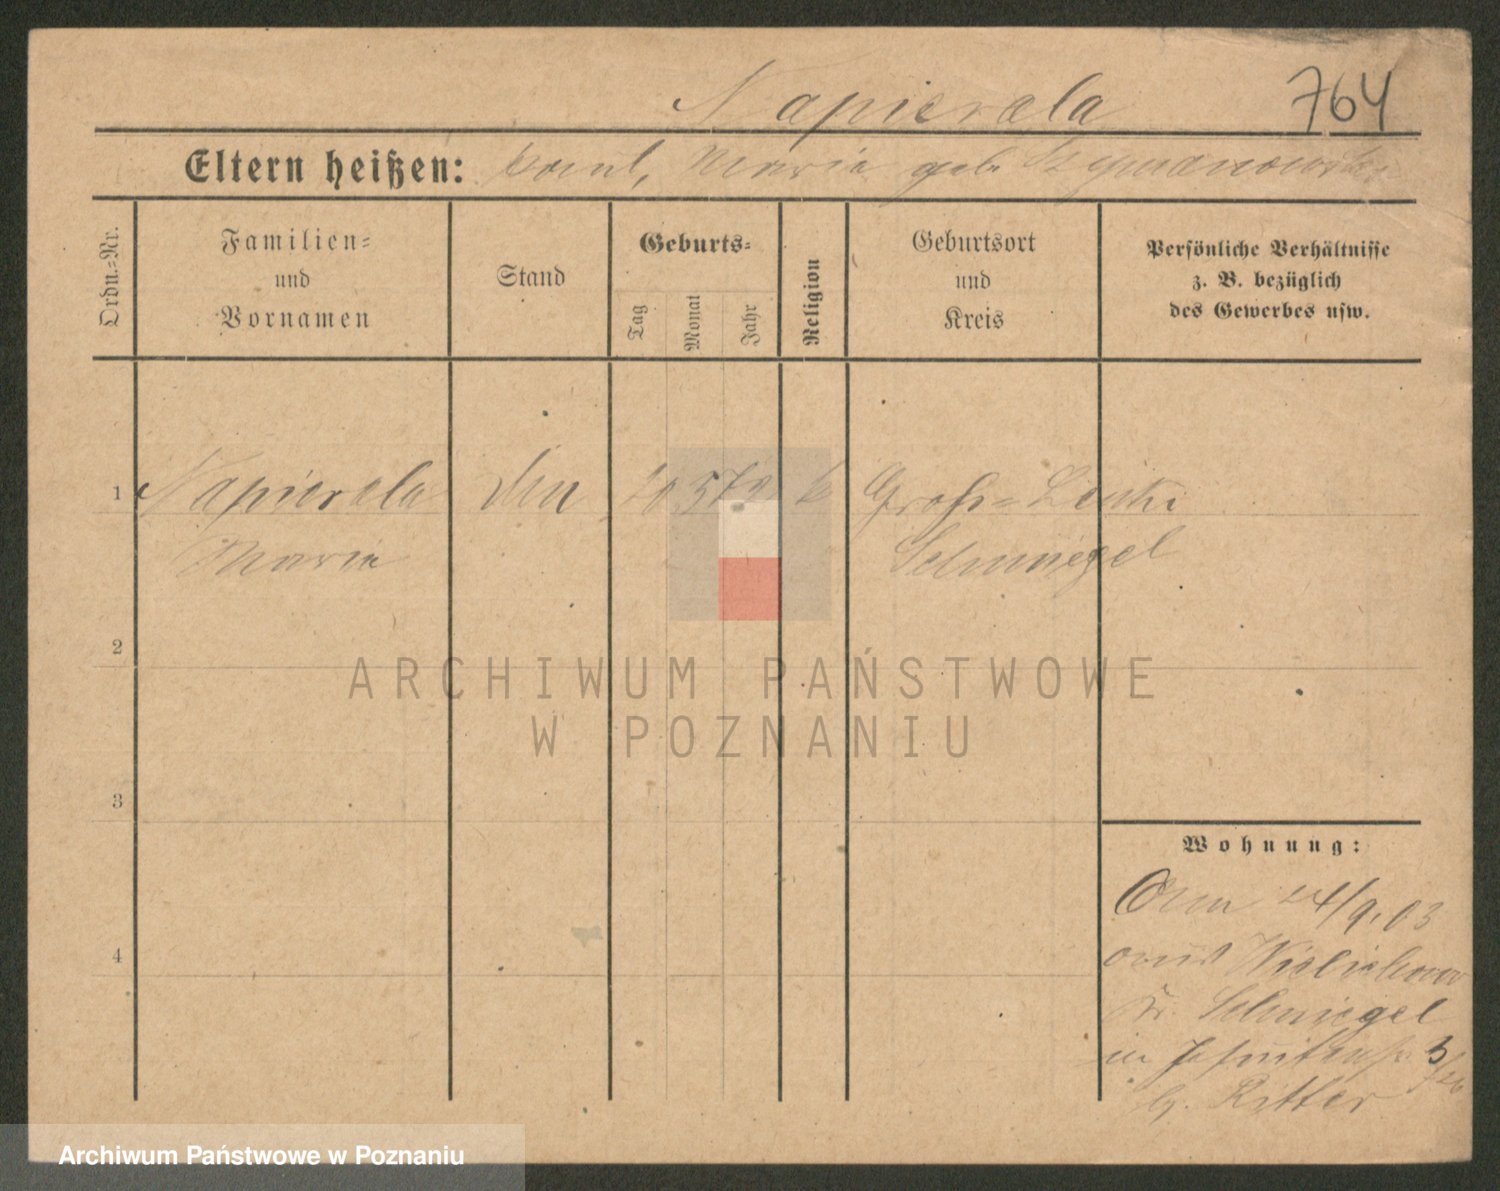 Napierala 764
Eltern heißen: Paul, Marie geb. Szymanowska
Ordn.-Nr.
Familien-
und
Vornamen
Stand
Geburts-
Tag
Monat
Jahr
Religion
Geburtsort
und
Kreis
Persönliche Verhältnisse
z. B. bezüglich
des Gewerbes usw.
1 Napierala 5 k Groß-
Marie Schmiegel
2
3
4
Wohnung:
9.03
aus Wielichowo
Kr. Schmiegel
in Jesuitenstr. 3
b. Ritter
ARCHIWUM PAŃSTWOWE
W POZNANIU
Archiwum Państwowe w Poznaniu